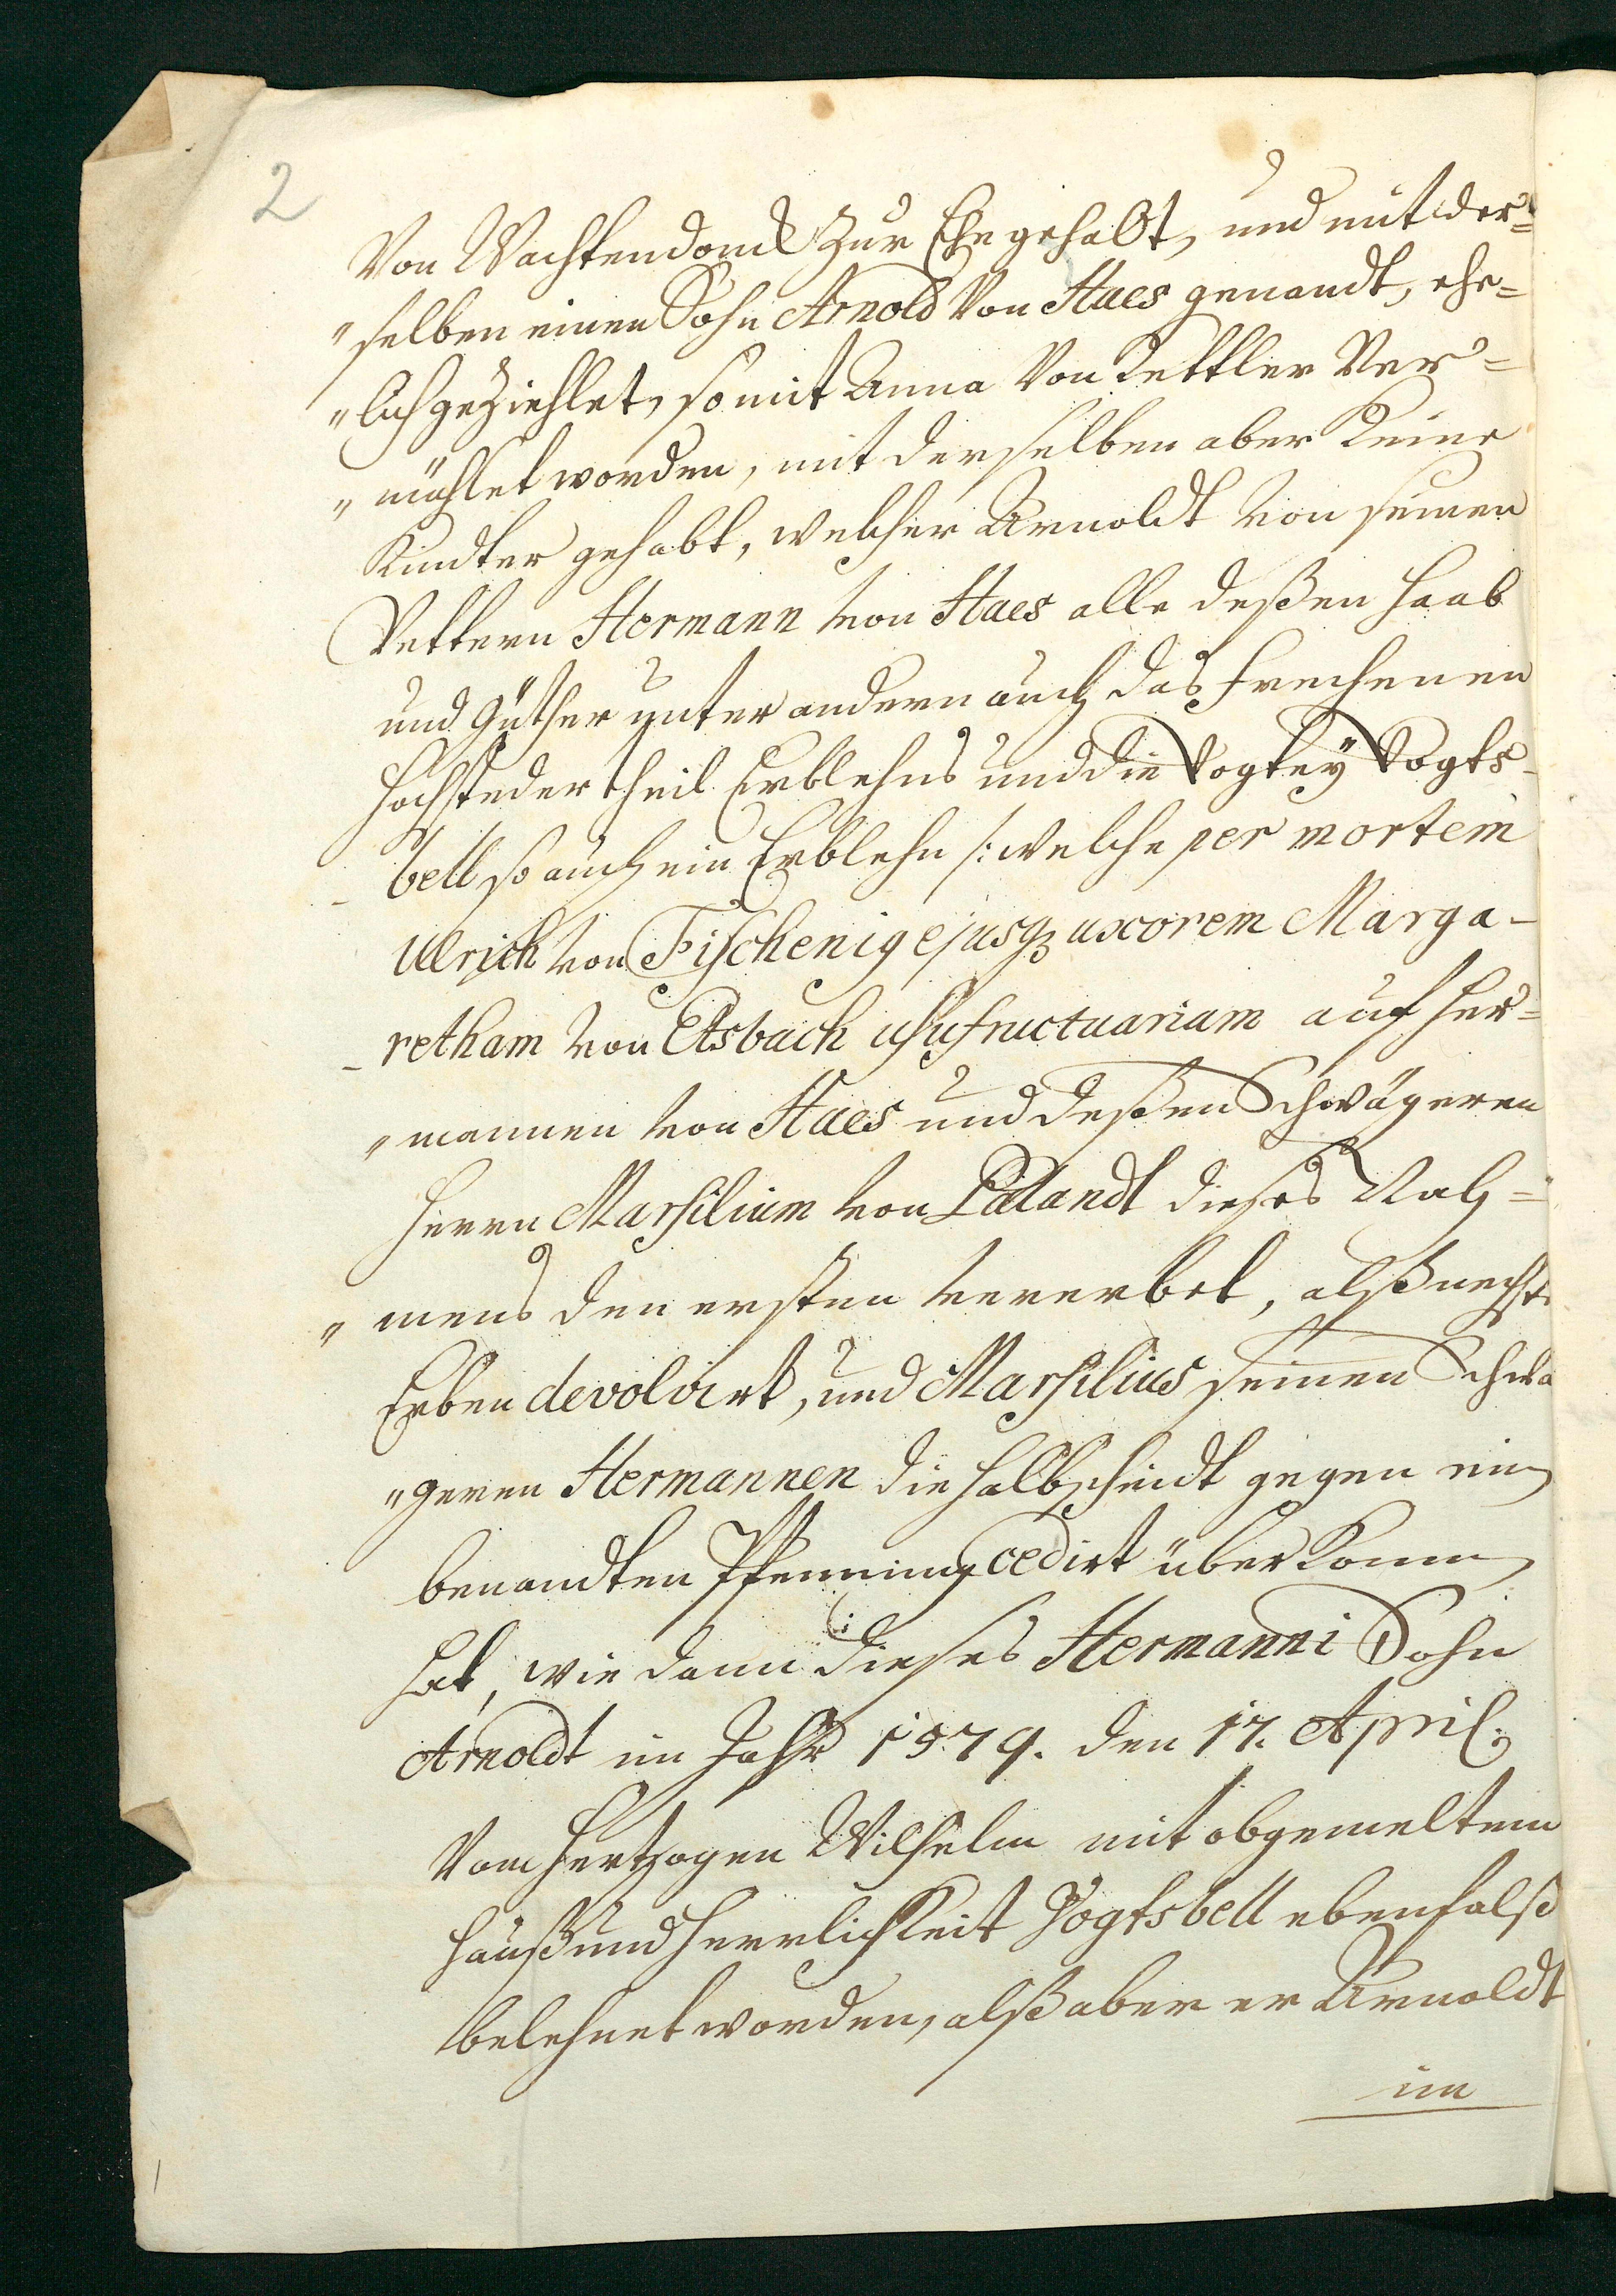 2
Von Wachtendonck zur Ehe gehabt, und mit der=
„selben einen Sohn Arnold Von Haes genandt, ehe=
„lich geziehlet, so mit Anna Von Kettler Ver=
„mählet worden, mit derselben aber Keine
Kindter gehabt, welcher Arnoldt von seinen
Vettern Hermann von Haes alle deßen Haab
und Güther unter andern auch das Frechenen
Hochsteder theil Erblehns und die Vogtey Vogts-
-bell so auch ein Erblehn /: welche per mortem
Ulrich von Fischenig ejusq uxorem Marga-
-retham von Etsbach usufructuariam auf Her=
„mannen von Haes und deßen Schwägeren
Herrn Marsilium von Palandt dieses Nah=
„mens den ersten vererbet, alß nechste
Erben devolvirt, und Marsilius seinen Schwa
„geren Hermannen die halbscheidt gegen ein
benandten Pfenning cedirt überkomm
hat, wie dann :/ dieses Hermanni Sohn
Arnoldt im Jahr 1579. den 17. April.
Vom Hertzogen Wilhelm mit obgemeltem
Hauß und Herrlichkeit Vogtsbell ebenfalß
belehnet worden, alß aber er Arnoldt
im